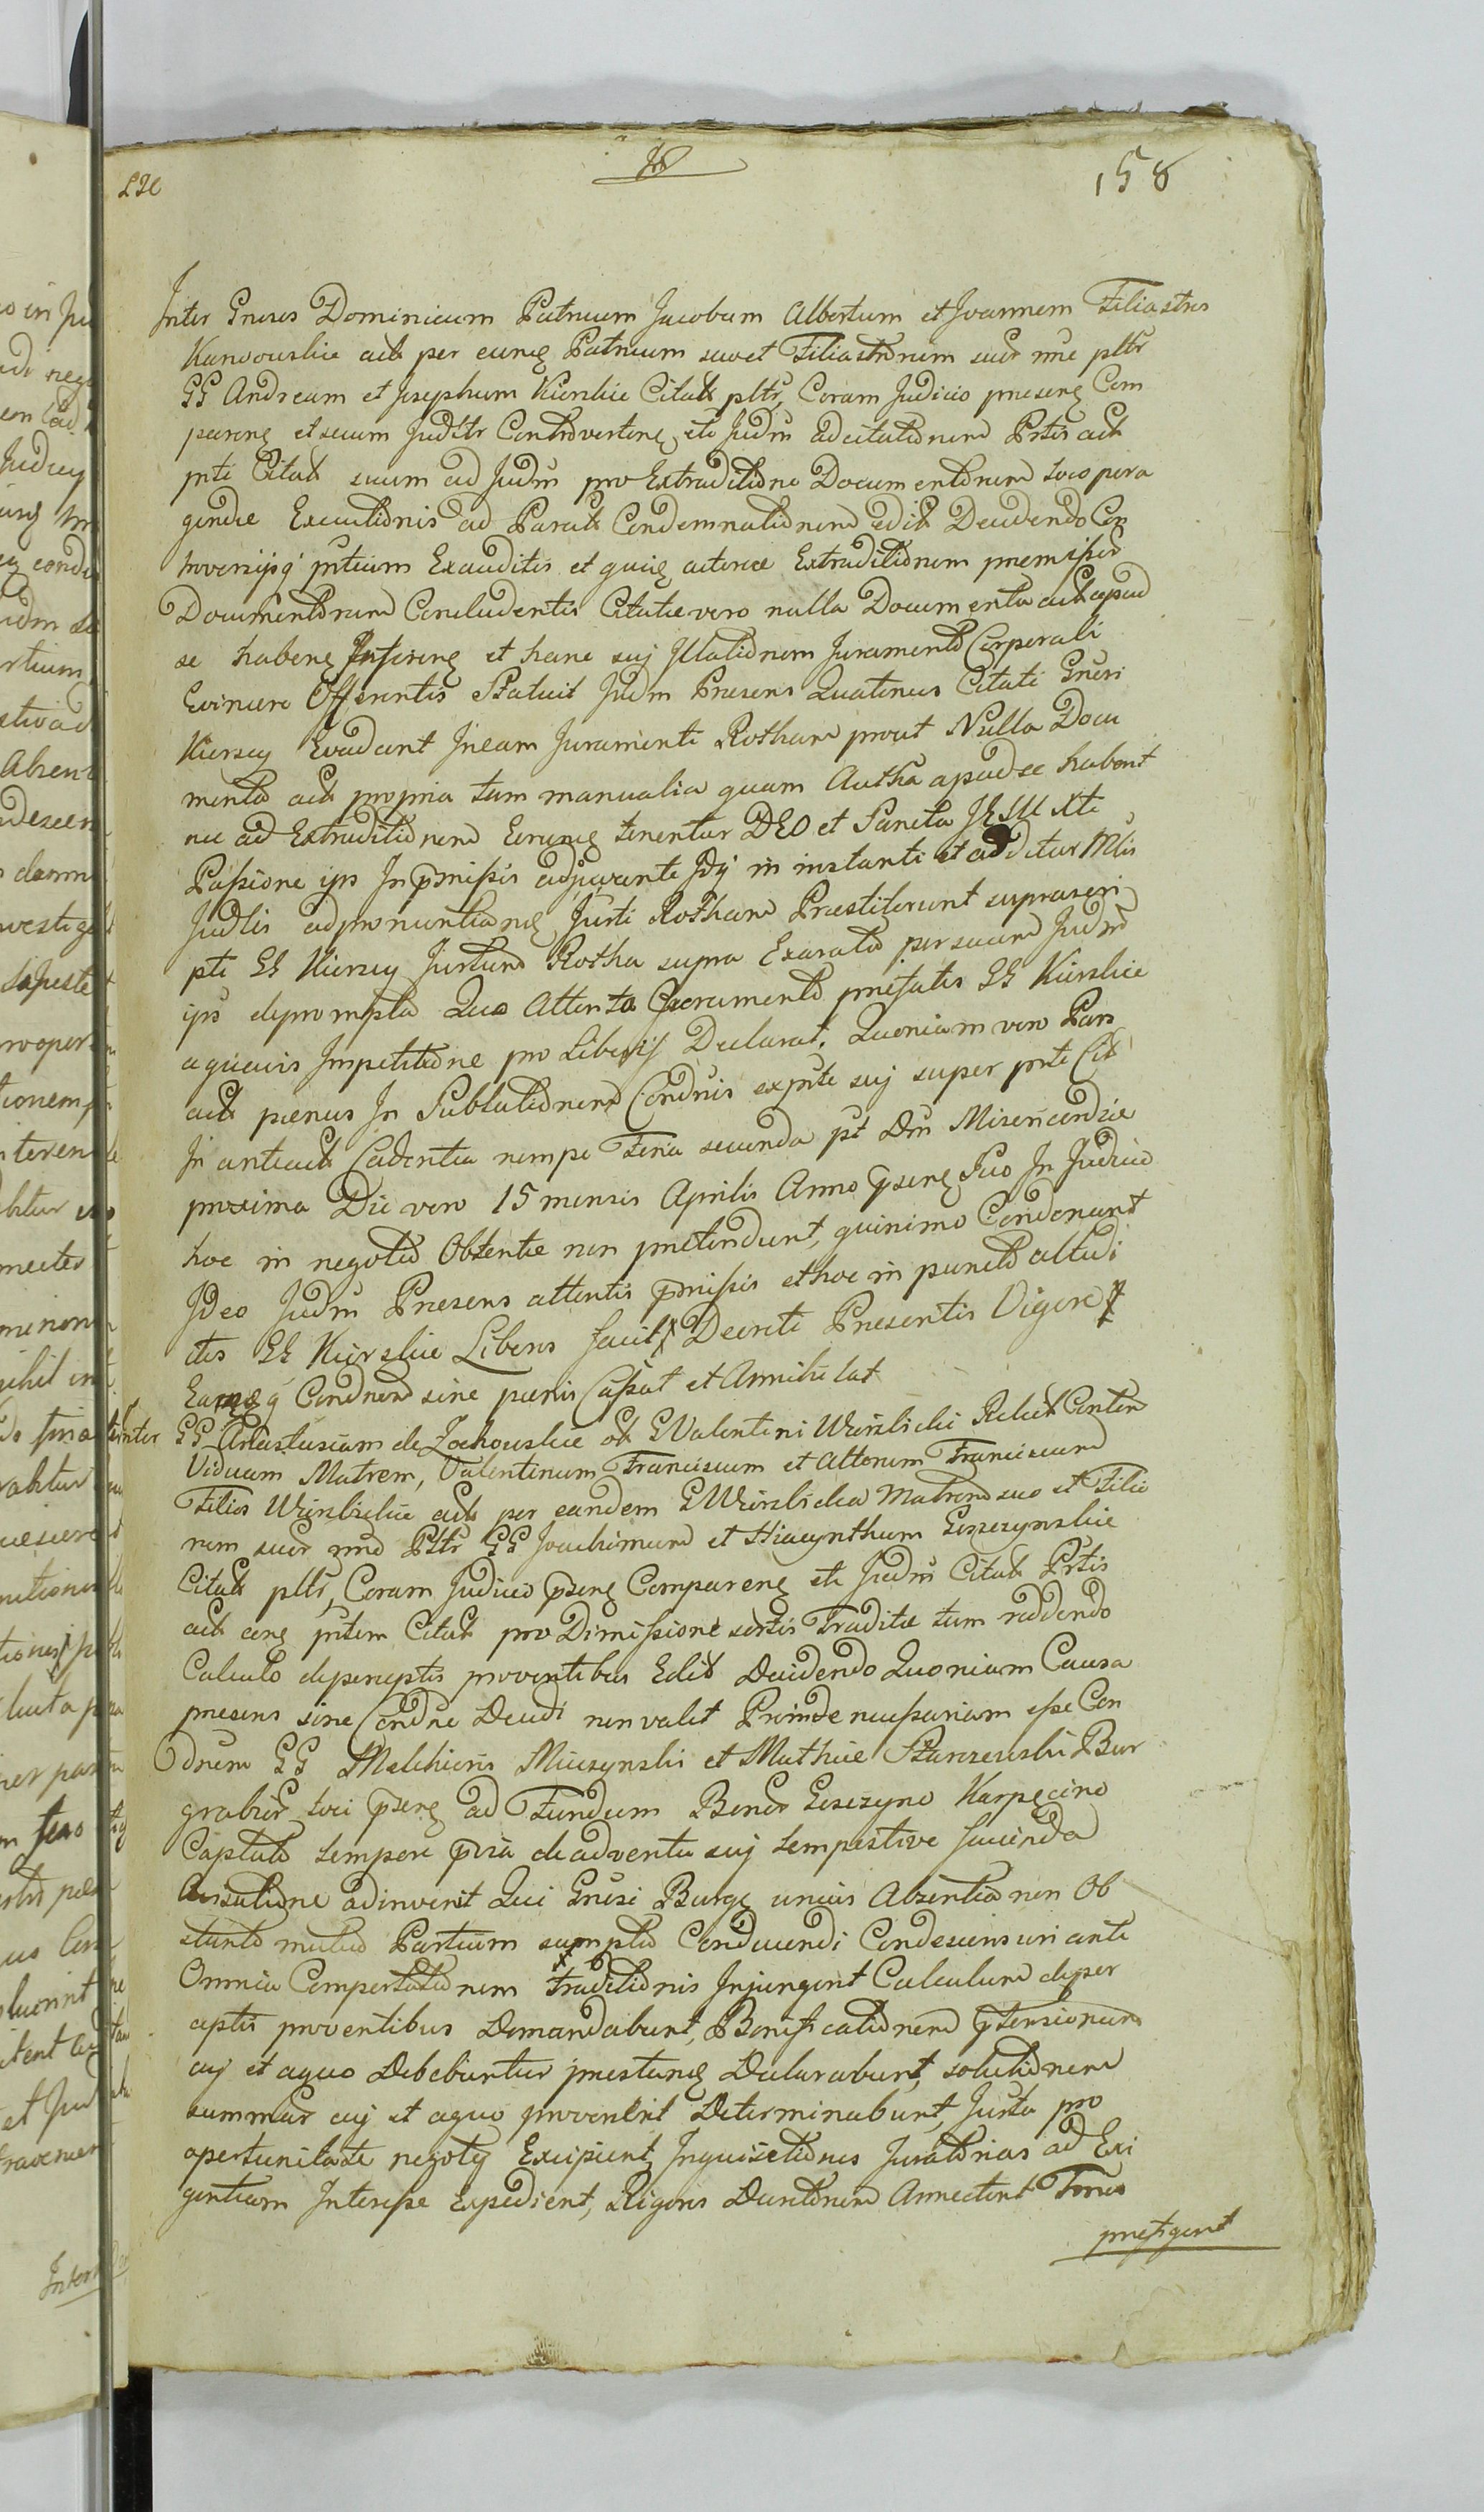 158
Inter Gnrosos Dominicum Patruum Jacobum Albertum et Joannem Filiastros
Karwowskie act per eunq Patruum suo et Filiastrorum suor nne pltr
GG Andream et Josephum Kierskie Citat pltr, Coram Judicio presenq Com
parenq et secum Juditr Controvertenq etc Judm ad citationem Prtis act
pnti Citat suum ad Judm pro Extraditione Documentorum loco pera
gendae Executionis ad Parat Condemnationem edit Decidendo Con
troversijsq prtium Exauditis et quiq actorea Extraditionem premissor
Documentorum Concludentis Citatae vero nulla Documenta act apud
se habenq Inferenq et hanc suj Illationem Juramento Corporali
Evincere Offerentis Statuit Judm Praesens Quatenus Citati Gnrosi
Kierscy Evadant In eam Juramenti Rotham prout Nulla Docu
menta act propria tam manualia quam Autha apud se habent
nec ad Extraditionem Eorumq tenentur DEO et Sancta JESU Xti
Passione ips In pmissis adjuvante Idq in instanti et additur Mlis
Judlis ad pronuntianq Jurti Rotham Praestiterunt suprascri
pti GG Kierscy Jurtum Rotha supra Exarato per suum Judm
ips deprompta Quo Attento Sacramento prefatis GG Kierskie
aquavis Impetitione pro Liberis Declarat. Quoniam vero Pars
act paenas In Sublationem Condnis ex pnte suj super pnte Cit
In anteact Cadentia nempe Feria secunda pt Dm Misericordiae
proxima Die vero 15 mensis Aprilis Anno psenq Suo In Judicio
hoc in negotio Obtentae non pretendunt, quinimo Condonant
Ideo Judm Praesens attentis pmissis et hoc in puncto altudi
tis GG Kierskie Liberos facit Decreti Presentis Vigore
Eamqq Condnem sine paenis Cassat et Annihilat
Inter GG Anastasiam de Zochowskie ol GValentini Wierzbicki Relict Conten
Viduam Matrem, Valentinum Franciscum et Alterum Franciscum
Filios Wierzbickie act per eandem GWierzbicka Matrem suo et Filio
rum suor nne Pltr GG Joachimum et Hiacynthum Goszczynskie
Citat pltr, Coram Judicio psenq Comparenq etc Judm Citat Prtis
act cenq pntem Citat pro Dimissione sortis Traditae tum reddendo
Calculo de perceptis proventibus Edit Decidendo Quoniam Causa
presens sine Condne Decidi non valet Proinde necessariam esse Con
dnem GG Melchioris Mieczynski et Mathiae Starzenski Bur
grabior loci psenq ad Fundum Bonor Goszczyno Karpęcino
Captato tempore pvia de adventu suj tempestive facienda
Avisatione adinvenit Qui Gnrosi Burgq unius Absentia non Ob
stante mutuo Partium sumpto Conducendi Condescensuri ante
Omnia Comportationem traditionis Injungent Calculum de per
ceptis proventibus Demandabunt, Bonificationem ptensionum
cuj et aquo Debebuntur prestanq Declarabunt, solutionem
summar cuj et aquo provenerit Determinabunt, Jurta pro
opertunitate negotij Excipient, Inquisitiones Juratorias ad Exi
gentiam Interesse Expedient, Rigoris Duntorum Annectent Trnos
prefigent